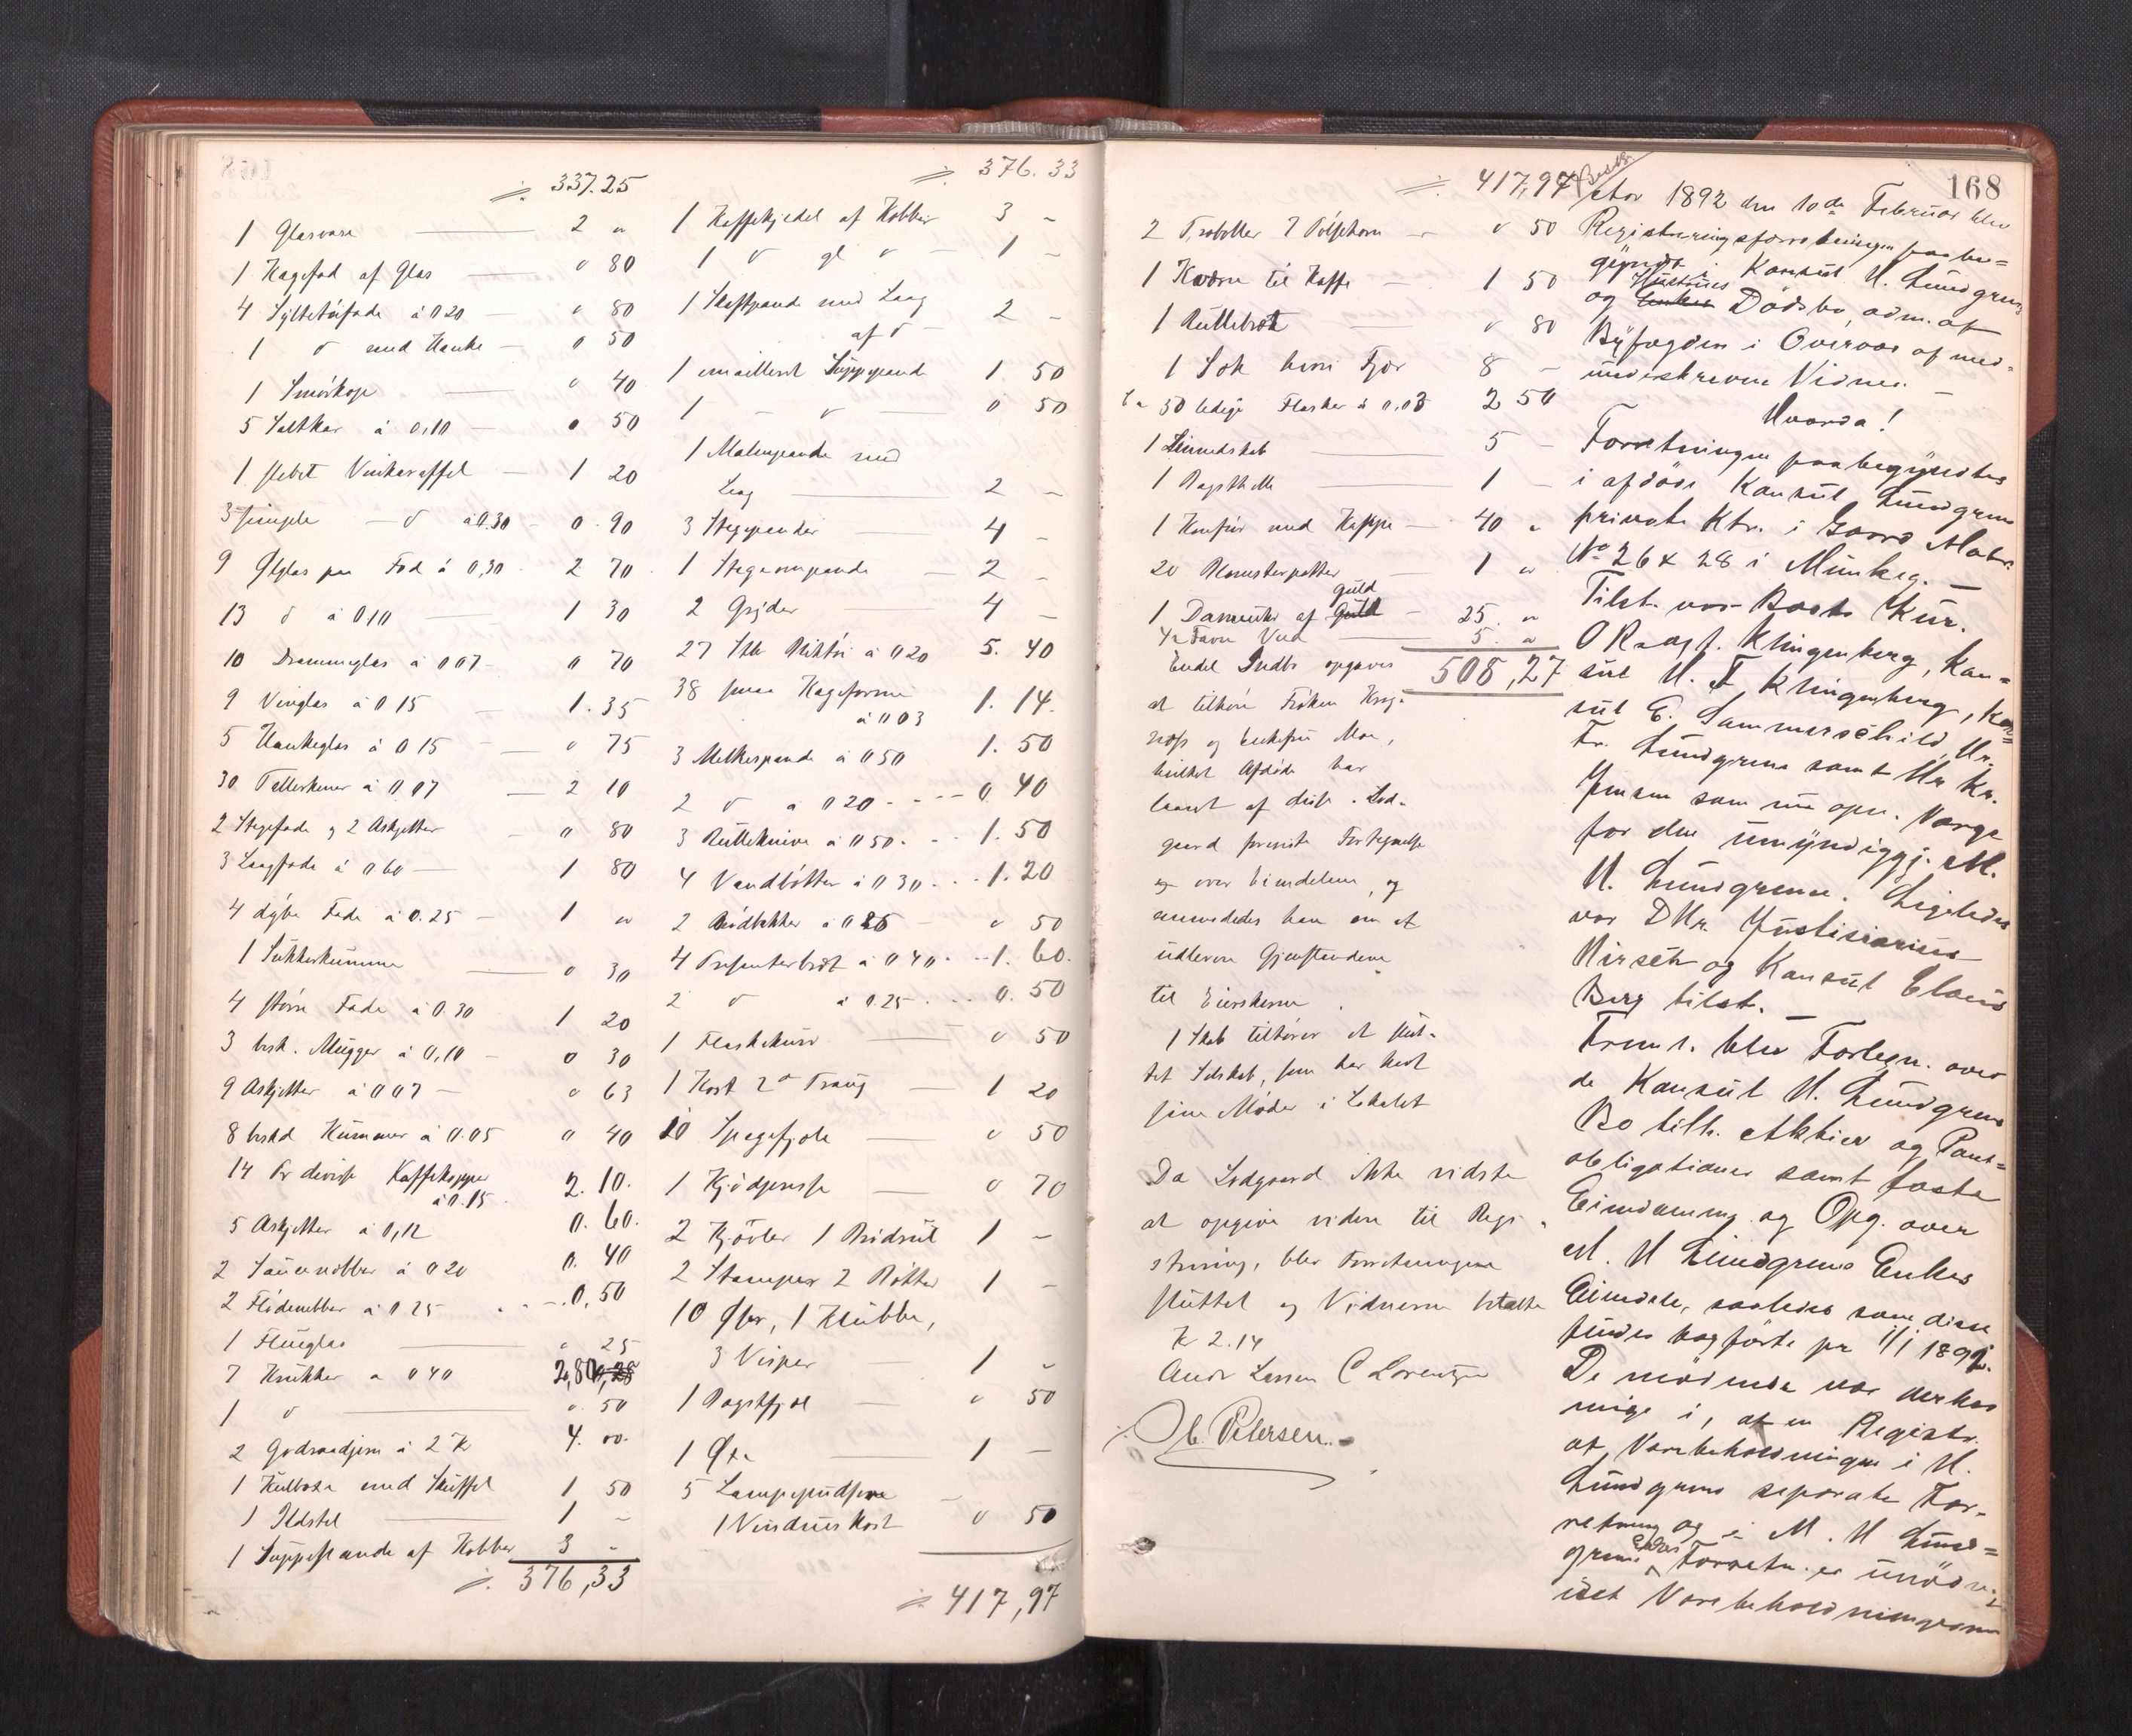 337.25
1 Glasvase 2 "
1 Kagefad af Glas " 80
4 Syltetøifade à 0 20 " 80
1 do med Hanke " 50
1 Smørkop " 40
5 Saltkar à 0.10 " 50
1 slebet Vinkaraffel 1 20
3 simple do à 0.30 0.90
9 Ølglas paa Fod à 0,30 2 70
13 do à 0 10 1 30
10 Drammeglas à 0 07 0 70
9 Vinglas à 0 15 1.35
5 Hankeglas à 0 15 " 75
30 Tallerkener à 0.07 2 10
2 Stegefade og 2 Askjetter " 80
3 Laagfade à 0 60 1 80
4 dybe Fade à 0.25 1 "
1 Sukkerkumme " 30
4 større Fade à 0.30 1 20
3 besk. Mugger à 0,10 0 30
9 Askjetter à 0 07 " 63
8 beskd Kummer à 0.05 0 40
14 Pr diverse Kaffekopper
à 0.15 2.10.
5 Askjetter à 0,12 0.60.
2 Sausenebber à 0 20 0.40
2 Flødenebber à 0 25 0,50
1 Flueglas " 25
7 Krukker a 0 40 2,80
1 do " 50
2 Godraadjern à 2 K 4.00.
1 Kulboxe med Skuffel 1 50
1 Ildstel 1 "
1 Suppepande af Kobber 3 "
376,33
376.33
1 Kaffekjedel af Kobber 3 "
1 do gl do 1 "
1 Skaftpande med Laag
af do 2 "
1 emailleret Suppepande 1 50
1 " do 0 50
1 Malmpande med
Laag 2 "
3 Stegepander 4 "
1 Stegeovnpande 2 "
2 Gryder 4 "
27 Stk Bliktøi à 0 20 5.40
38 smaa Kageforme
à 0 03 1.14.
3 Melkespande à 0 50 1.50
2 do a 0 20 0.40
3 Rulleknive à 0 50 1.50
4 Vandbøtter à 0 30 1.20
2 Brødbakker à 0 25 " 50
4 Presenterbret à 0 40 1.60.
2 do à 0 25 0.50
1 Flaskekurv " 50
1 Kost 2 do Traug 1 20
10 Spegefjole " 50
1 Kjødpresse " 70
2 Kjøvler 1 Brødrul 1 "
2 Stamper 2 Bøtter 1 "
10 Øser, 1 Klubbe,
3 Visper 1 "
1 Bagstfjøl " 50
1 Øxe 1 "
5 Lampepudsere
1 Vindueskost " 50
417,97
417,97
2 Traboller 2 Pølsehorn " 50
1 Kværn til Kaffe 1 50
1 Rullebræt " 80
1 Sæk hvori Fjær 8 "
Ca 50 ledige Flasker à 0.05 2 50
1 Linnedskab 5 "
1 Bagsthelle 1 "
1 Komfur med Kappe 40 "
20 Blomsterpotter 1 "
Guld
1 Dameuhr af Guld 25. "
1/2 Favn Ved 5. "
508,27
Endel Indbo opgaves
at tilhøre Frøken Krog-
næss og Enkefru Moe,
hvilket Afdøde har
laant af disse. Lod-
gaard foreviste Fortegnelse
over Eiendelene, og
anmodedes han om at
udlevere Gjenstandene
til Eierskerne.
1 Skab tilhører et slut-
tet Selskab, som har havt
sine Møder i Lokalet
Da Lodgaard ikke vidste
at opgive videre til Regi-
strering, blev Forretningen
sluttet og Vidnerne betalte
K 2.14
Andr Larsen C Lorentzen
Chr. Petersen.
168
Aar 1892 den 10de Februar blev
Registreringsforretningen paabe=
gyndt i Konsul H. Lundgrens
Hustrues
og Enkes Dødsbo, adm. af
Byfogden i Overvær af med-
underskrevne Vidner. —
Hvorda!
Forretningen paabegyndtes
i afdøde Konsul Lundgrens
private Ktr. i Gaard Matr.
No 26 & 28 i Munkeg. —
Tilst. var Boets Kur.
O R. sagf. Klingenberg, Kon=
sul H. F. Klingenberg, Kon=
sul E. Sommerschild, Hr.
Fr. Lundgreen samt Hr Kr.
Jensen som nu opn. Værge
for den umyndiggj. M.
H. Lundgreen. Ligeledes
var DHr. Justisiarius
Hirsch og Konsul Claus
Berg tilst. —
Freml. blev Fortegn. over
de Konsul H. Lundgrens
Bo tilh. Aktier og Pant=
obligationer samt faste
Eiendomme og Opg. over
M. H Lundgrens Enkes
Eiendele, saaledes som disse
findes bogførte pr 1/1 1892.
De mødende var derhos
enige i, at en Registr.
af Varebeholdningen i H.
Lundgrens separate For-
retning og i M. H Lund=
Enkes
grens Forretn. er unødv.,
idet Varebeholdningerne